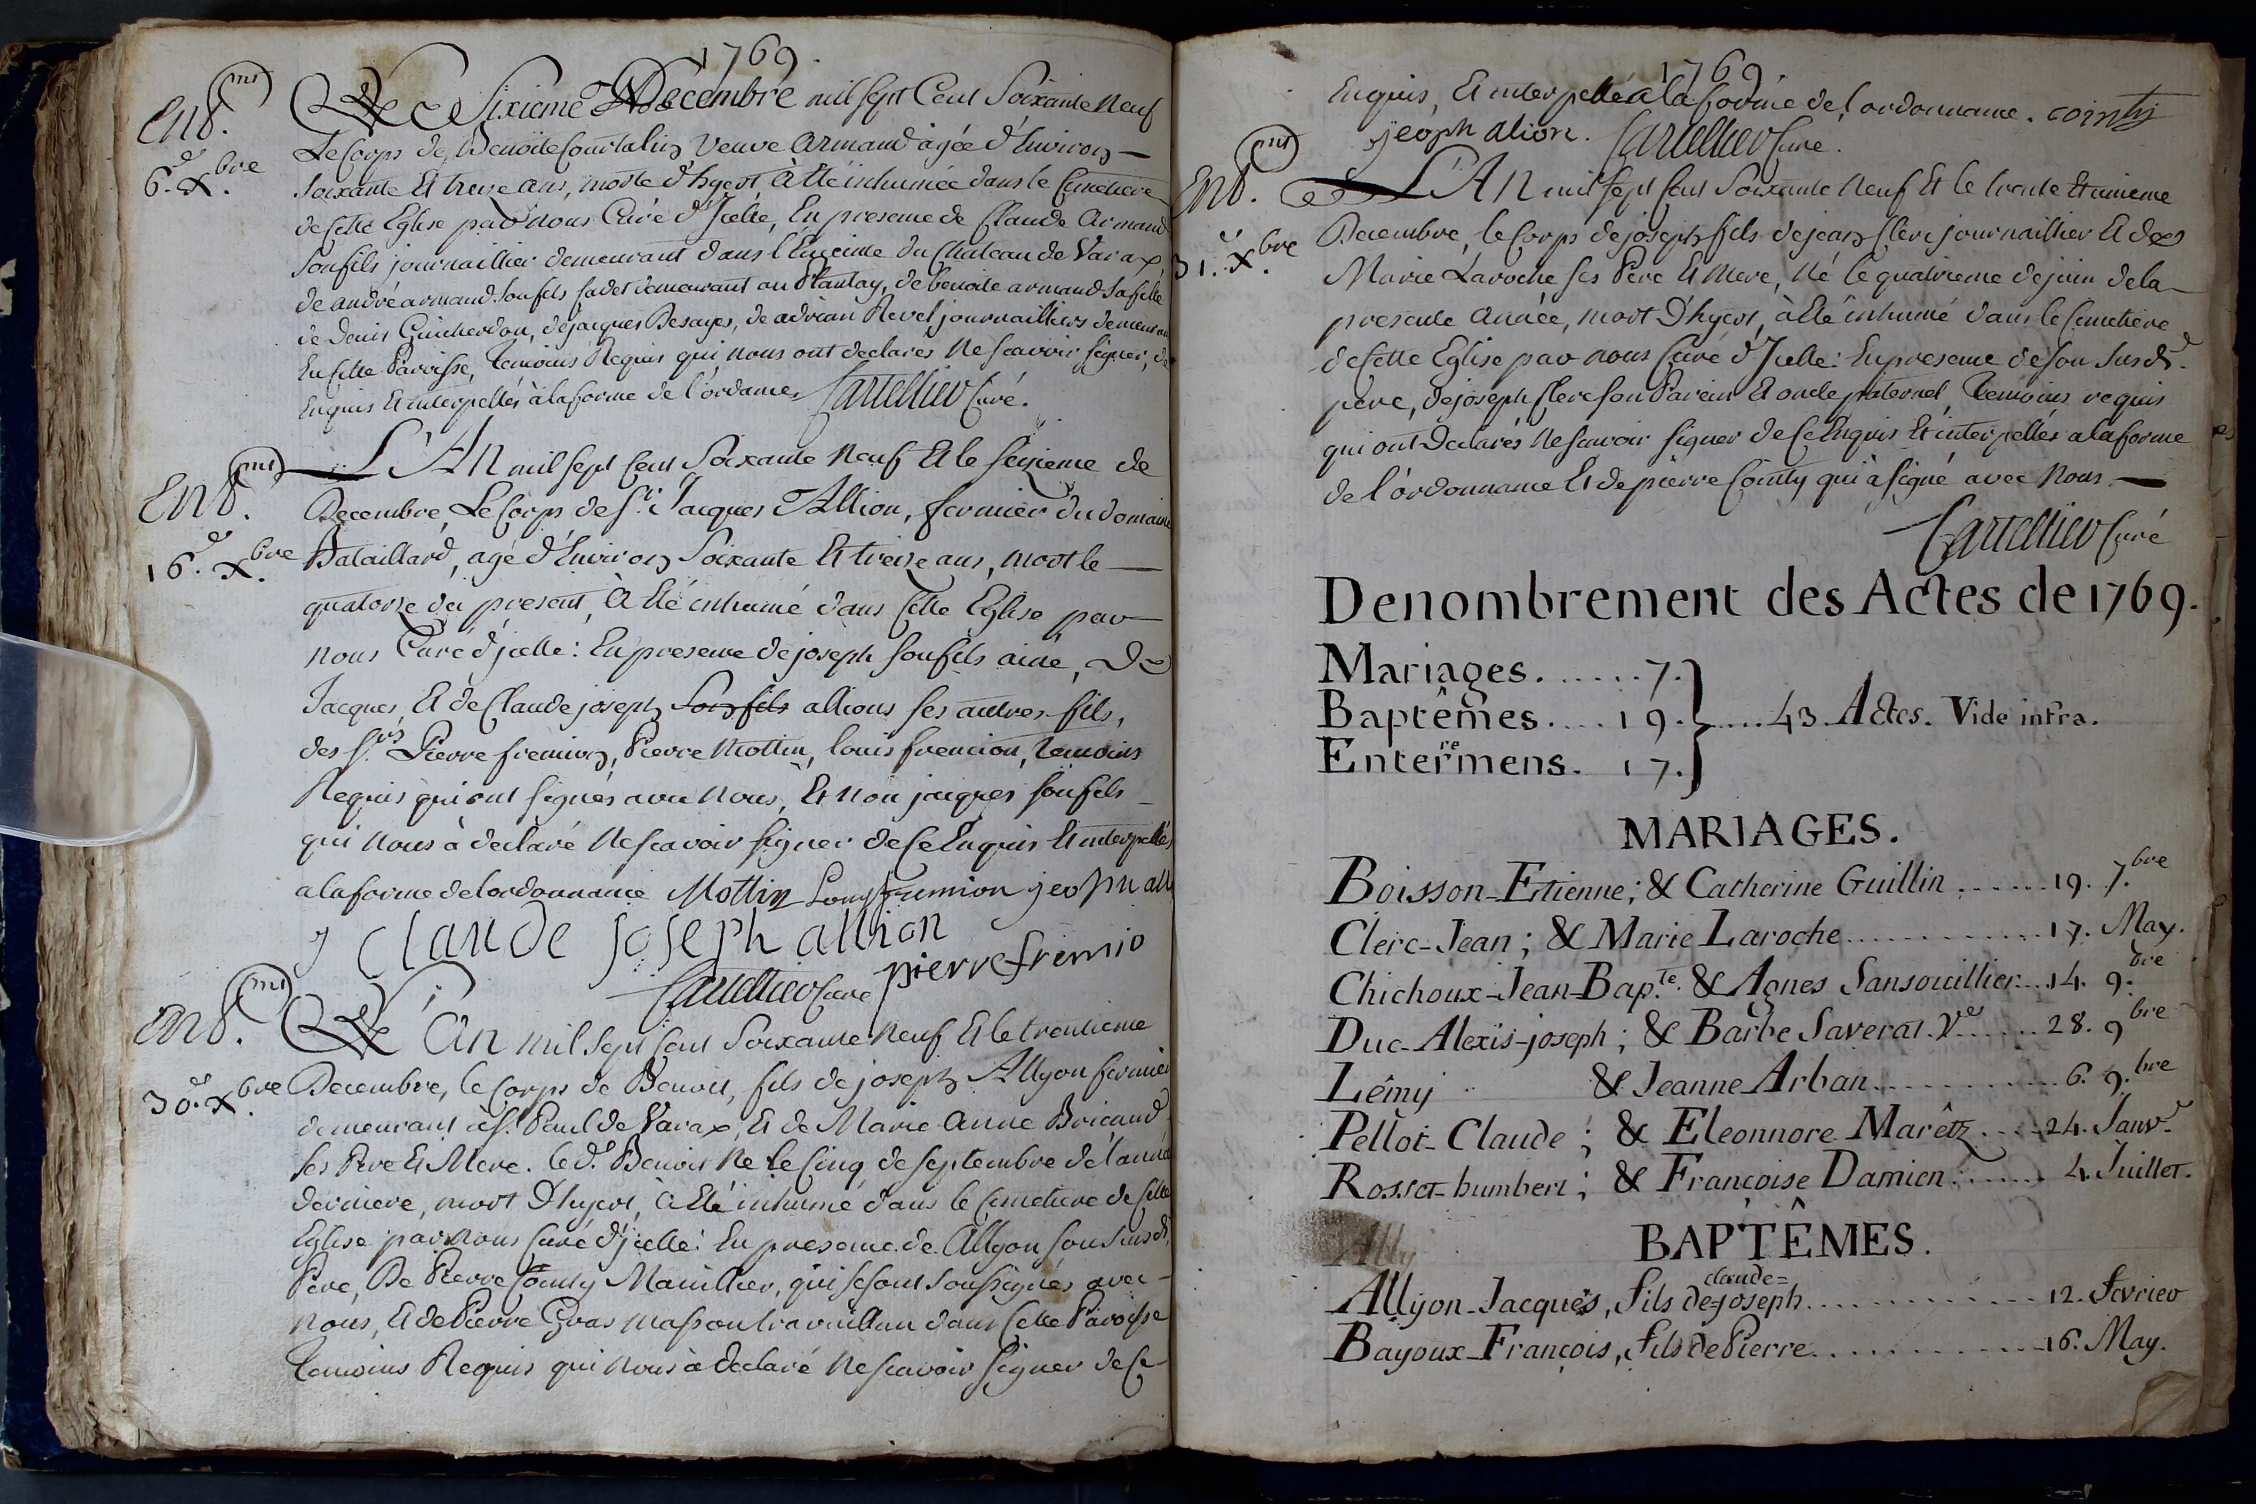 1769.
Ent.mt
6.e Xbre
Le Sixieme Decembre mil sept Cent Soixante Neuf
Le Corps de Benoite Courtalin Veuve Armand agée d'Environ
Soixante Et treize ans, morte d'hyert à Eté inhumée dans le Cemetiere
de Cette Eglise par nous Curé d'Icelle, En presence de Claude Armand
Son fils journaillier demeurant dans l'Enceinte du Chateau de Varax,
de andré armand Son fils Cadet demeurant au Plantay, de benoite armand Sa fille
de Denis Guicherdon, de jacques Desayes, de adrian Revel journailliers demeurant
En Cette Paroisse, Temoins Requis qui nous ont declarés Ne Scavoir Signer, de
Enquis Et interpellés à la forme de l'ordance. Cartellier Curé.
Ent.mt
16.e Xbre
L'An mil sept Cent Soixante Neuf Et le Seizieme de
Decembre, Le Corps de Sr. Jacques Allion, fermier du domaine
Bataillard, agé d'Environ Soixante Et treize ans, mort le
quatorze du present, à Eté inhumé dans Cette Eglise par
nous Curé d'jcelle: En presence de joseph Son fils ainé, De
Jacques, Et de Claude joseph Son fils allions Ses autres fils,
des Srs. Pierre fremion, Pierre Mottin, louis fremion, Temoins
Requis qui ont Signés avec Nous, Et Non jacques Son fils
qui Nous à declaré Ne Scavoir Signer de Ce Enquis Et interpellés
a la forme de lordonnance Mottin Louis fremion jeoph alli
J Claude joseph allion
Cartellier Curé pierre fremio
Ent.mt
30.e Xbre
L'An mil sept Cent Soixante Neuf Et le trentieme
Decembre, le Corps de Benoit, fils de joseph Allyon fermier
demeurant à St. Paul de Varax, Et de Marie Anne Bricaud
Ses Pere Et Mere. led.t Benoit Né le Cinq de Septembre de l'année
derniere, mort D'hyert, à Eté inhumé dans le Cemetiere de Cette
Eglise par Nous Curé d'jcelle: En presence de Allyon Son Susdt.
Pere, De Pierre Cointy Maníllier, qui Se Sont Soussignés avec
Nous, Et de Pierre Gras masson travaillan dans Cette Paroisse
Temoins Requis qui Nous à declaré Ne Scavoir Signer de Ce
1769
Enquis, Et interpellé à la forme de l'ordonnance. cointy
jeoph alion. Cartellier Curé.
Ent.mt
31.e Xbre
L'An mil Sept Cent Soixante Neuf Et le trente Et unieme
Decembre, le Corps de joseph fils de jean Clerc journaillier Et de
Marie Laroche Ses Pere Et Mere, Né le quatrieme de juin de la
presente Année, mort D'hyert, à Eté inhumé dans le Cemetiere
de Cette Eglise par nous Curé d'Icelle: En presence de Son Susd.t
pere, de joseph Clerc Son Parein Et oncle paternel, Temoins requis
qui ont Declarés Ne Scavoir Signer de Ce Enquis Et interpellés a la forme
de l'ordonnance Et de pierre Cointy qui à Signé avec Nous
Cartellier Curé
Denombrement des Actes de 1769.
Mariages. ..... 7.
Baptêmes. ... 19. .... 43. Actes. Vide infra.
Enterremens. 17.
MARIAGES.
Boisson-Etienne; & Catherine Guillin ...... 19. 7.bre
Clerc-Jean; & Marie Laroche ............ 17. May.
Chichoux-Jean-Bap.te & Agnes Sansouillier... 14. 9.bre
Duc-Alexis-joseph; & Barbe Saverat. Ve ..... 28. 9bre
Lêmy & Jeanne Arban ............ 6. 9.bre
Pellot-Claude; & Eleonnore Marêtz ..... 24. Janvr.
Rosset-humbert; & Françoise Damien ....... 4. Juillet.
BAPTÊMES.
Ally
Allyon-Jacques, fils de claude=joseph ............ 12. fevrier
Bayoux-François, fils de Pierre ............ 16. May.